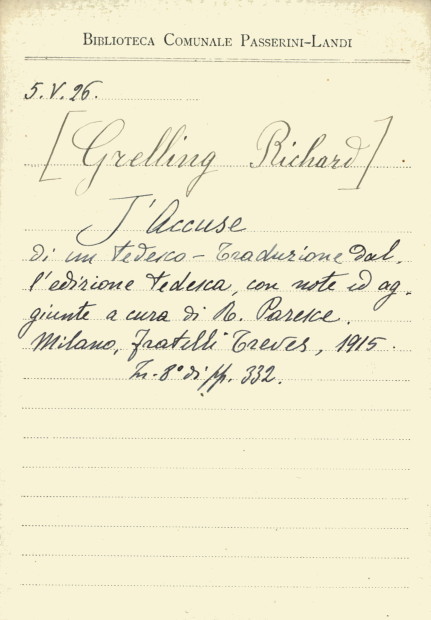 BIBLIOTECA COMUNALE PASSERINI-LANDI
5.V.26.
[Grelling Richard]
J'Accuse
di un tedesco - Traduzione dal-
l'edizione tedesca, con note ed ag-
giunte a cura di R. Paresce.
Milano, Fratelli Treves, 1915.
In-8° di pp. 332.